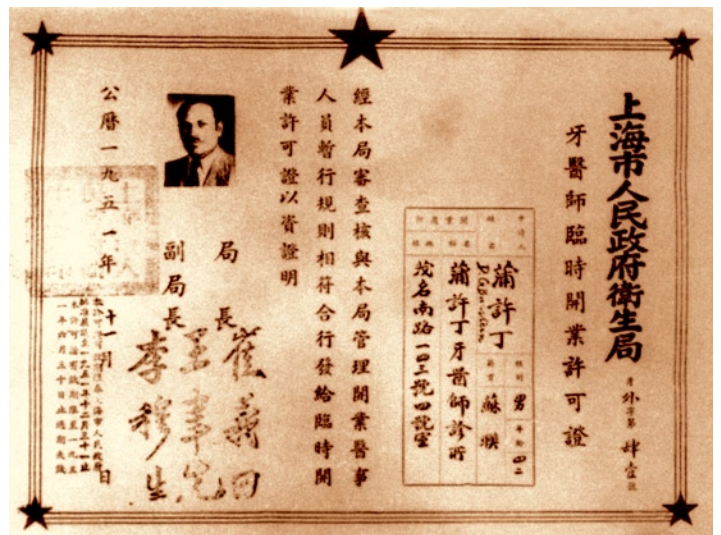 上海市人民政府衛生局
牙醫師臨時開業許可證
外字第肆壹號
申請人
姓名
蒲許丁
性別 男 年齡 四二
籍貫 蘇聯
開業處所
名稱 蒲許丁牙醫師診所
地址 茂名南路一四三號四號室
經本局審查核與本局管理開業醫事
人員暫行規則相符合行發給臨時開
業許可證以資證明
局長 崔義田
副局長 王聿先
李穆生
公曆一九五一年十一月 日